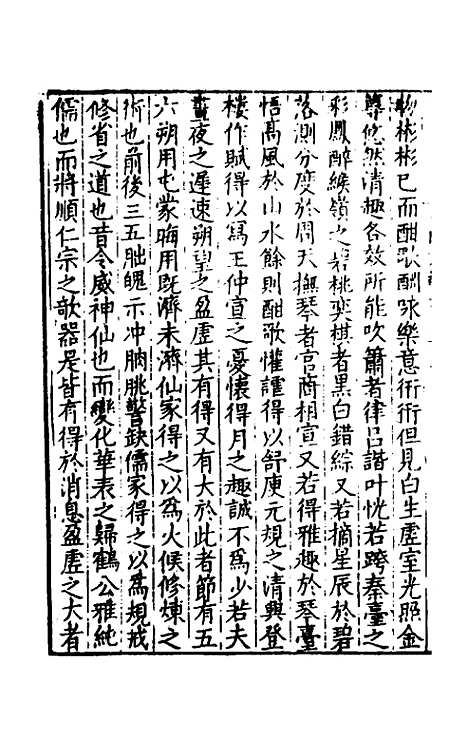 物彬彬已而酣歌酬咏樂意衎衎但見白生虛室光照金
尊悠然清趣各效所能吹簫者律呂諧叶恍若跨秦臺之
彩鳳醉緱嶺之碧桃奕棋者黑白錯綜又若摘星辰於碧
落測分度於周天撫琴者宮商相宣又若得雅趣於琴臺
悟高風於山水餘則酣歌懽謔得以舒庾元規之清興登
樓作賦得以寫王仲宣之憂懷得月之趣誠不爲少若夫
晝夜之遲速朔望之盈虛其有得又有大於此者節有五
六朔用屯蒙晦用既濟未濟仙家得之以爲火候修煉之
術也前後三五朏魄示冲朒朓警缺儒家得之以爲規戒
修省之道也昔令威神仙也而變化華表之歸鶴公雅純
儒也而將順仁宗之欹器是皆有得於消息盈虛之大者